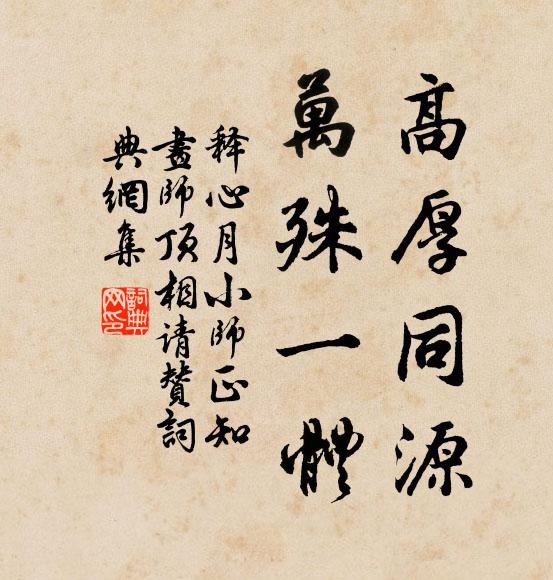 高厚同源
萬殊一體
释心月小師正知
畫師頂相请赞詞
典網集
詞典
网印